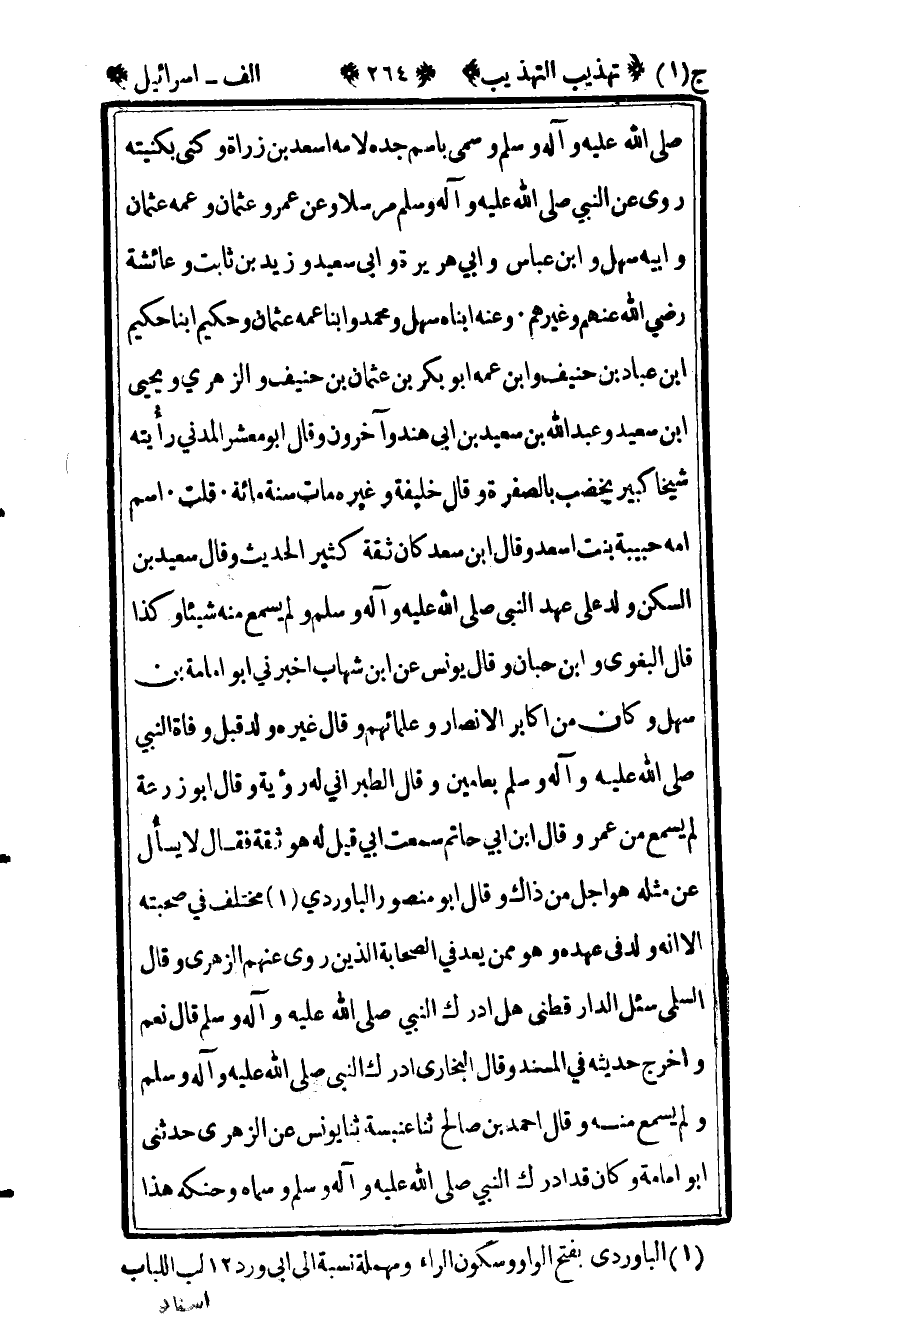 ج(١) ﴿ تهذيب التهذيب ﴾ ﴿ ٢٦٤ ﴾ الف - اسرائيل ﴾
صلى الله عليه و آله و سلم و سمى باسم جده لامه اسعد بن زرارة و كنى بكنيته
روى عن النبي صلى الله عليه و آله وسلم مرسلا وعن عمر و عثمان و عمه عثمان
و ابيه سهل و ابن عباس و ابي هريرة و ابى سعيد و زيد بن ثابت و عائشة
رضي الله عنهم وغيرهم · وعنه ابناه سهل و محمد و ابنا عمه عثمان و حكيم ابنا حكيم
ابن عباد بن حنيف و ابن عمه ابو بكر بن عثمان بن حنيف و الزهري و يحيى
ابن سعيد و عبد الله بن سعيد بن ابي هند و آخرون وقال ابو معشر المدني رأيته
شيخا كبير يخضب بالصفرة و قال خليفة و غيره مات سنة مائة · قلت · اسم
امه حبيبة بنت اسعد وقال ابن سعد كان ثقة كثير الحديث وقال سعيد بن
السكن و لد على عهد النبي صلى الله عليه و آله و سلم و لم يسمع منه شيئا و كذا
قال البغوى و ابن حبان و قال يونس عن ابن شهاب اخبرني ابو امامة بن
سهل و كان من اكابر الانصار و علمائهم و قال غيره و لد قبل و فاة النبي
صلى الله عليه و آله و سلم بعامين و قال الطبراني له رؤية و قال ابو زرعة
لم يسمع من عمر و قال ابن ابي حاتم سمعت ابي قيل له هو ثقة فقال لا يسأل
عن مثله هو اجل من ذاك و قال ابو منصور الباوردي (١) مختلف في صحبته
الا انه و لد فى عهده و هو ممن يعد في الصحابة الذين روى عنهم الزهرى و قال
السلمى سئل الدار قطنى هل ادرك النبي صلى الله عليه و آله و سلم قال نعم
و اخرج حديثه في المسند وقال البخارى ادرك النبي صلى الله عليه و آله و سلم
و لم يسمع منه و قال احمد بن صالح ثنا عنبسة ثنا يونس عن الزهرى حدثنى
ابو امامة و كان قد ادرك النبي صلى الله عليه و آله و سلم و سماه و حنكه هذا
(١) الباوردى بفتح الواو و سكون الراء و مهملة نسبة الى ابى ورد ١٢ لب اللباب
اسناد